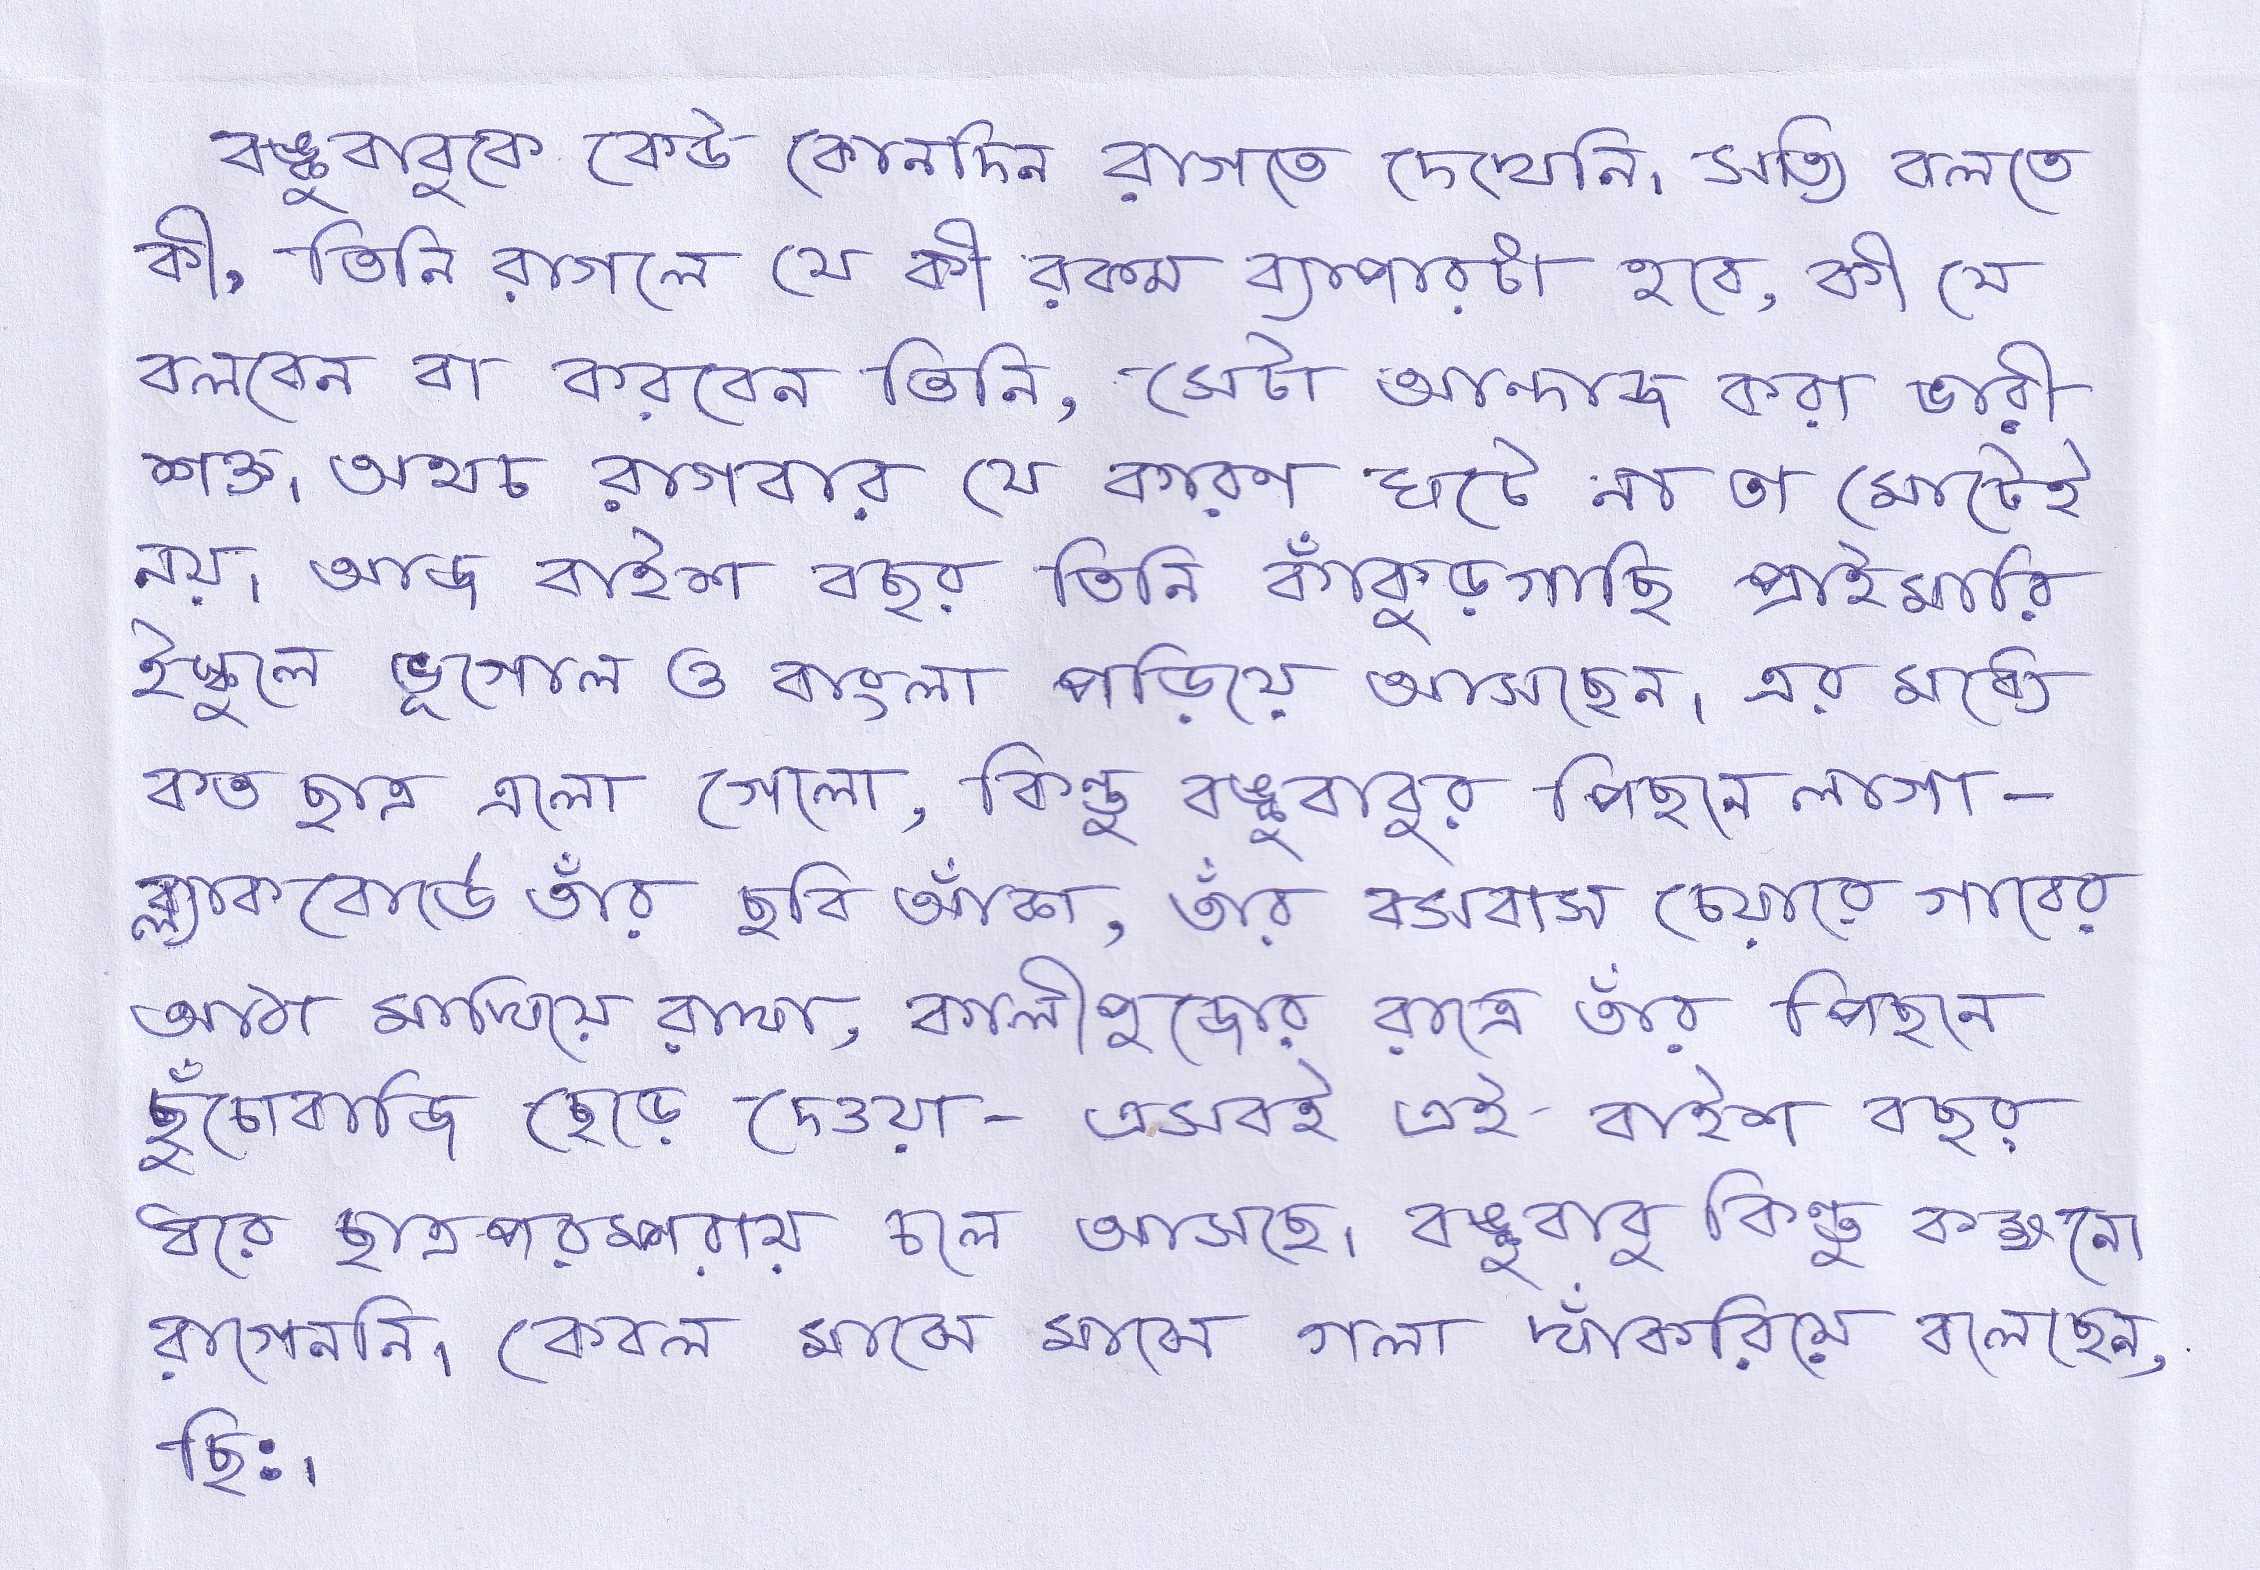 বঙ্কুবাবুকে কেউ কোনদিন রাগতে দেখেনি। সত্যি বলতে
কী, তিনি রাগলে যে কী রকম ব্যাপারটা হবে, কী যে
বলবেন বা করবেন তিনি, সেটা আন্দাজ করা ভারী
শক্ত। অথচ রাগবার যে কারণ ঘটে না তা মোটেই
নয়। আজ বাইশ বছর তিনি কাঁকুড়গাছি প্রাইমারি
ইস্কুলে ভূগোল ও বাংলা পড়িয়ে আসছেন। এর মধ্যে
কত ছাত্র এলো গেলো, কিন্তু বঙ্কুবাবুর পিছনে লাগা -
ব্ল্যাকবোর্ডে তাঁর ছবি আঁকা, তাঁর বসবার চেয়ারে গাবের
আঠা মাখিয়ে রাখা, কালীপুজোর রাত্রে তাঁর পিছনে
ছুঁচোবাজি ছেড়ে দেওয়া - এসবই এই বাইশ বছর
ধরে ছাত্রপরম্পরায় চলে আসছে। বঙ্কুবাবু কিন্তু কক্ষনো
রাগেননি। কেবল মাঝে মাঝে গলা খাঁকরিয়ে বলেছেন,
ছিঃ।